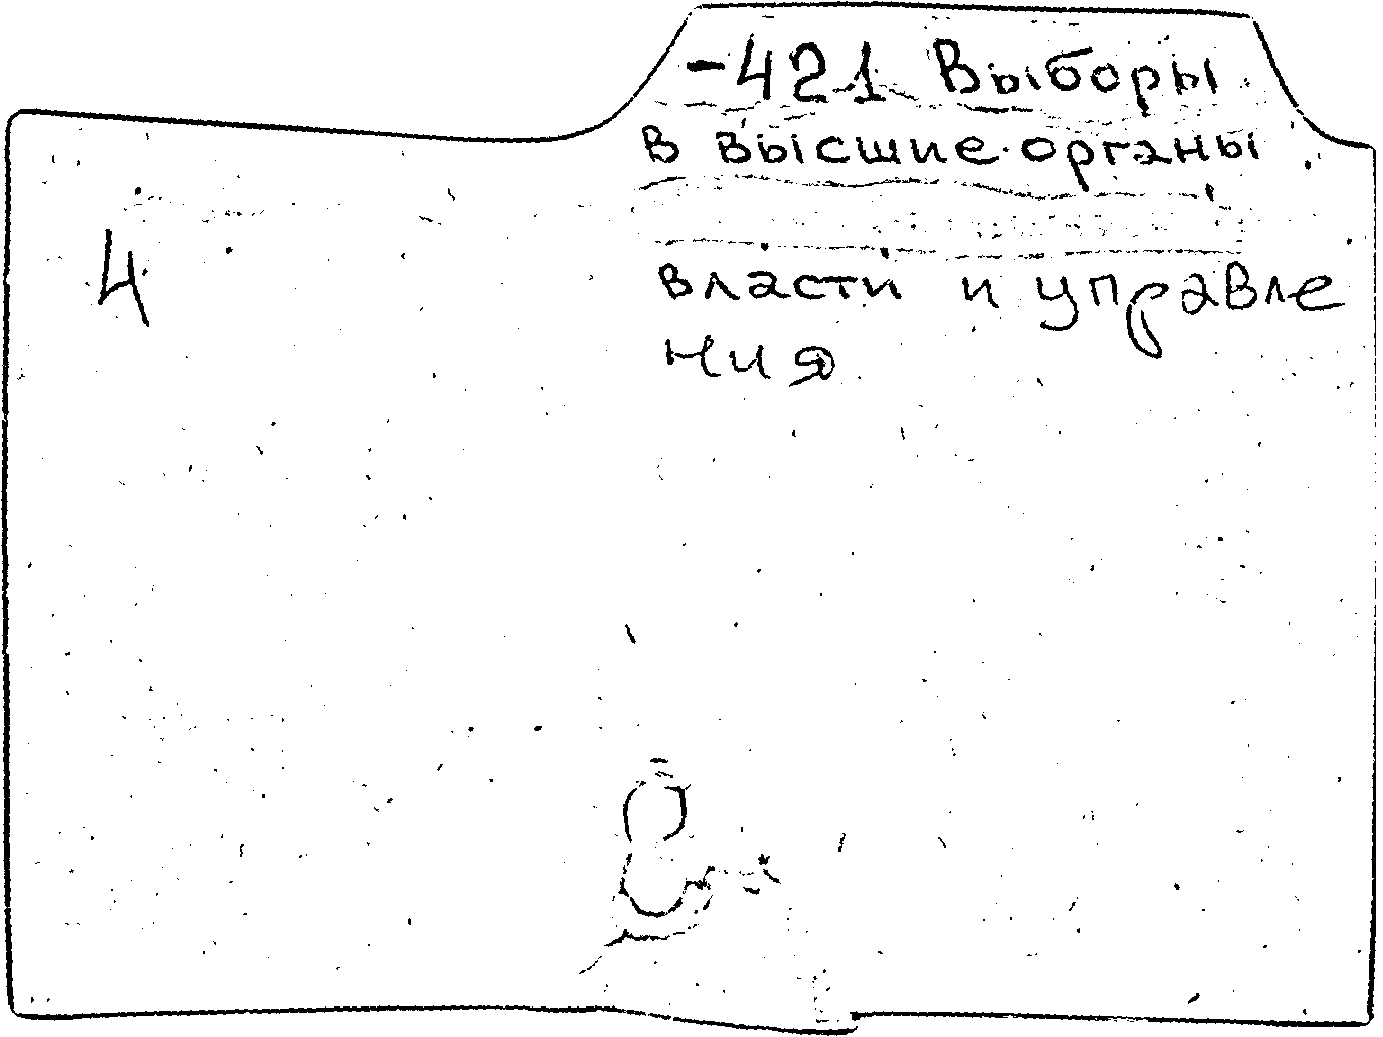 -421 Выборы
в высшие органы
4
власти и управле
ния